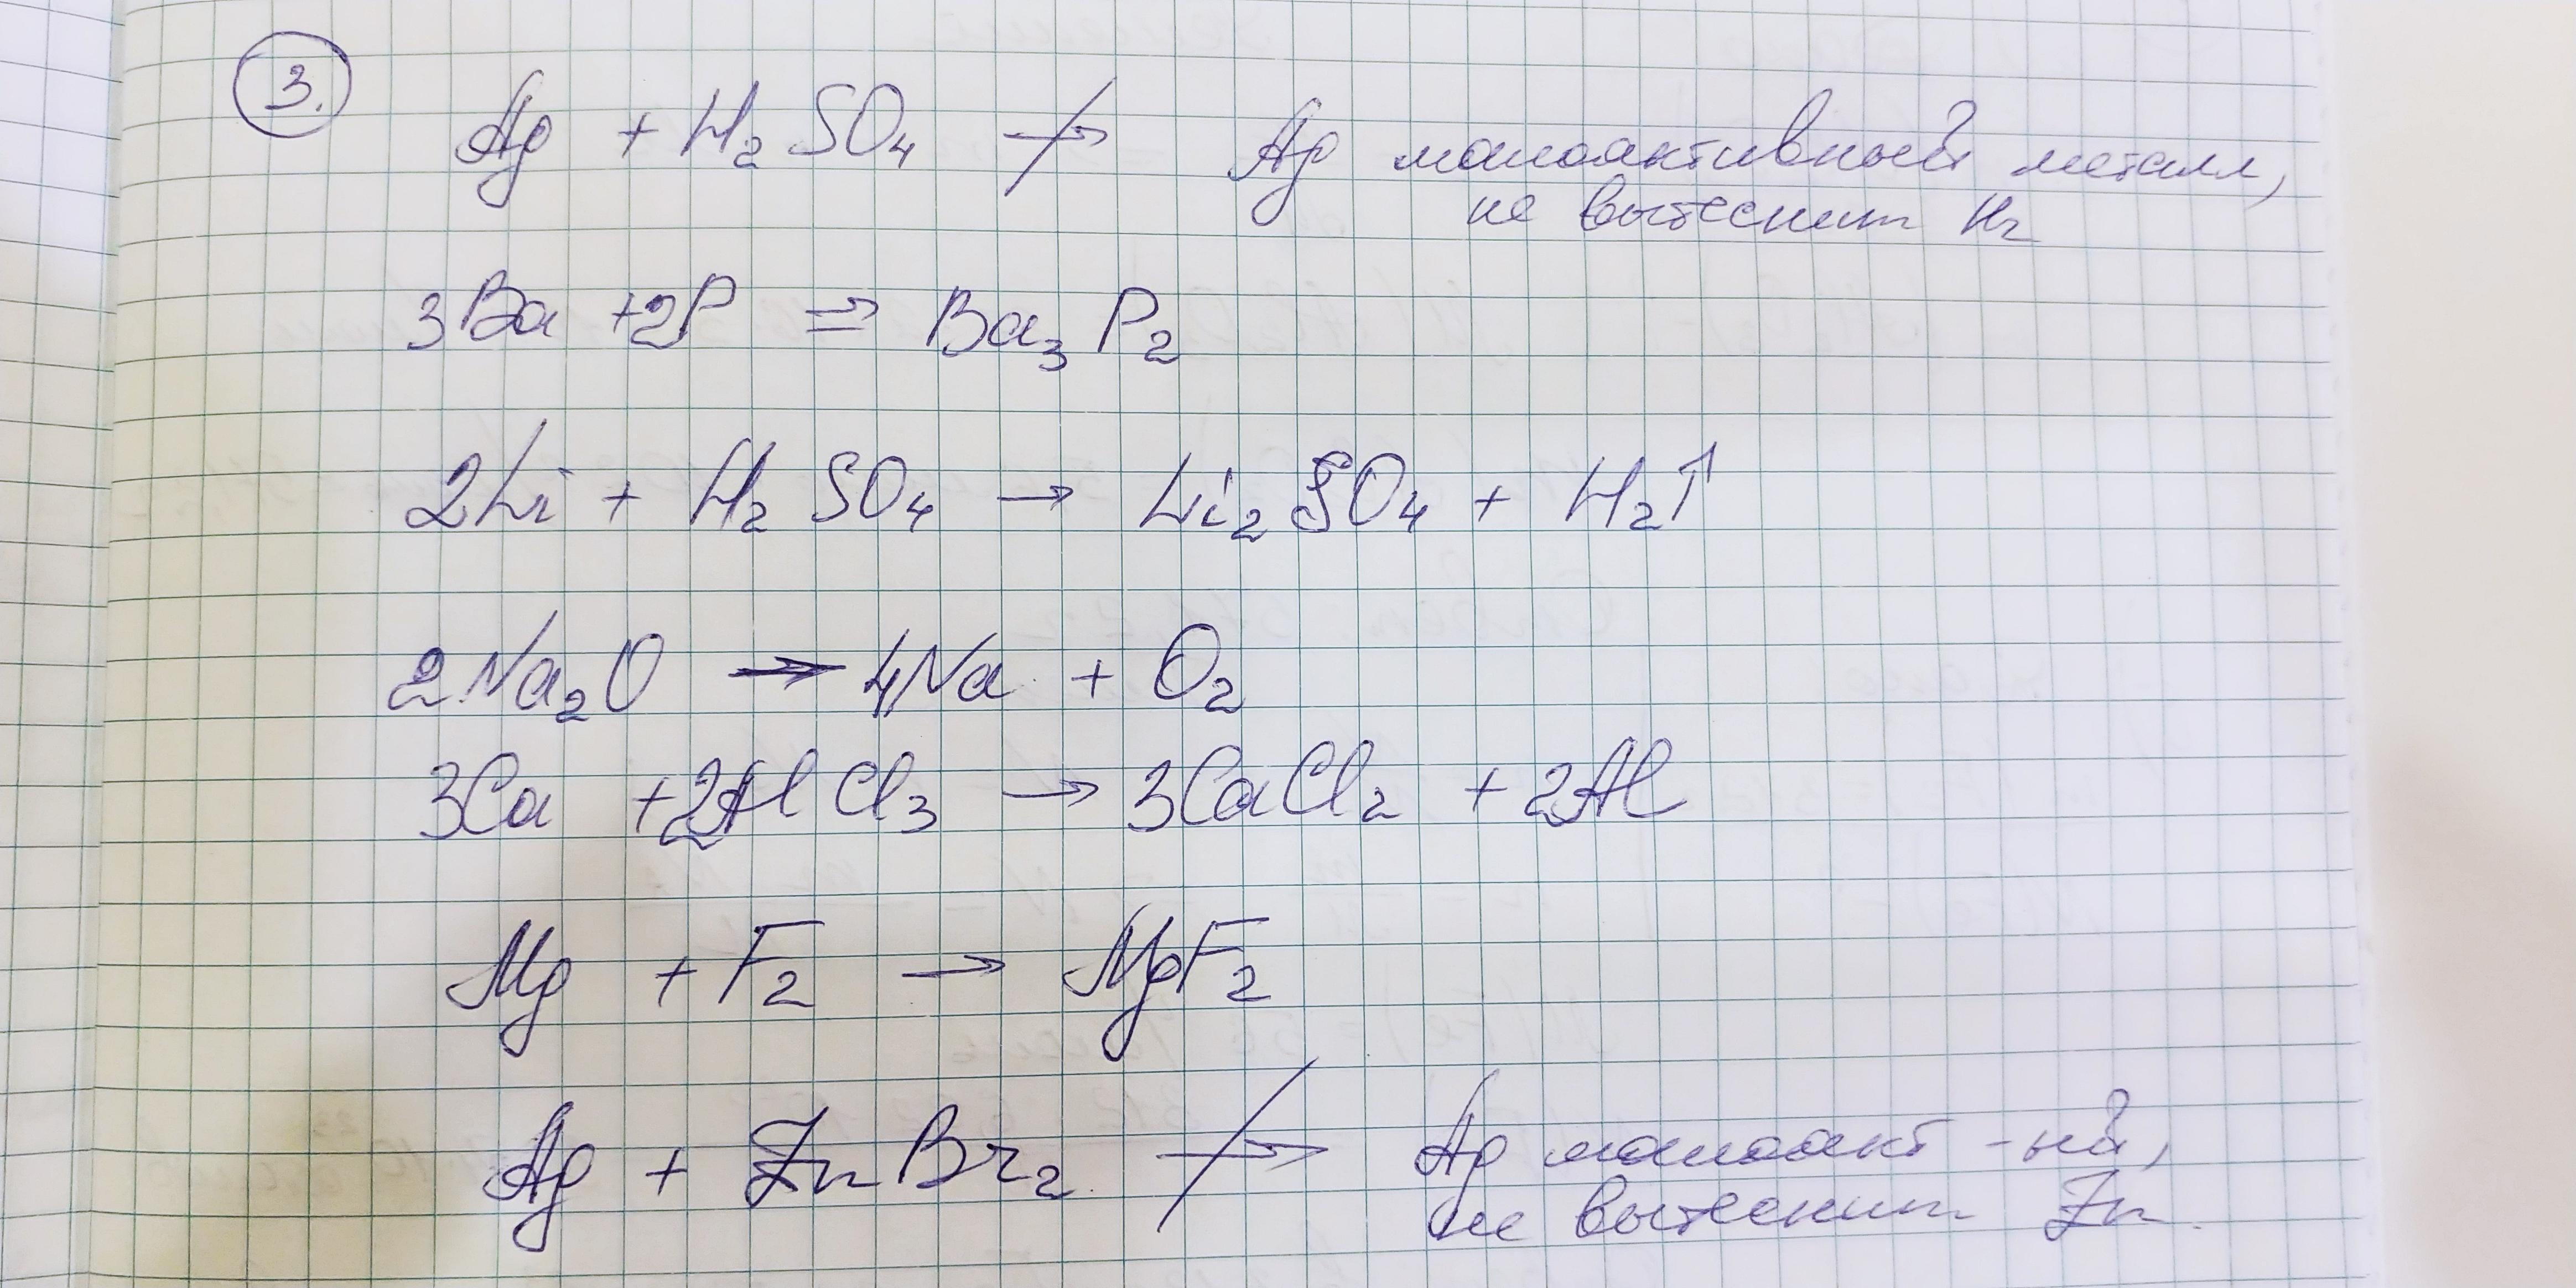 3.
Ag + H₂SO₄ ↛ Ag малоактивный металл,
не вытеснит H₂
3Ba + 2P ⇒ Ba₃P₂
2Li + H₂SO₄ → Li₂SO₄ + H₂↑
2Na₂O → 4Na + O₂
3Ca + 2AlCl₃ → 3CaCl₂ + 2Al
Mg + F₂ → MgF₂
Ag + ZnBr₂ ↛ Ag малоакт-ый,
не вытеснит Zn.